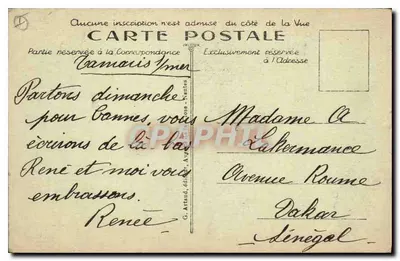 Aucune inscription n'est admise du côté de la Vue
CARTE POSTALE
Partie réservée à la Correspondance
Exclusivement réservée
à l'Adresse
Tamaris s/mer
Partons dimanche
pour Cannes, vous
écrirons de là bas
René et moi vous
embrassons.
Renée
G. Artaud, Nantes
Madame A
Lakermance
Avenue Roume
Dakar
Sénégal